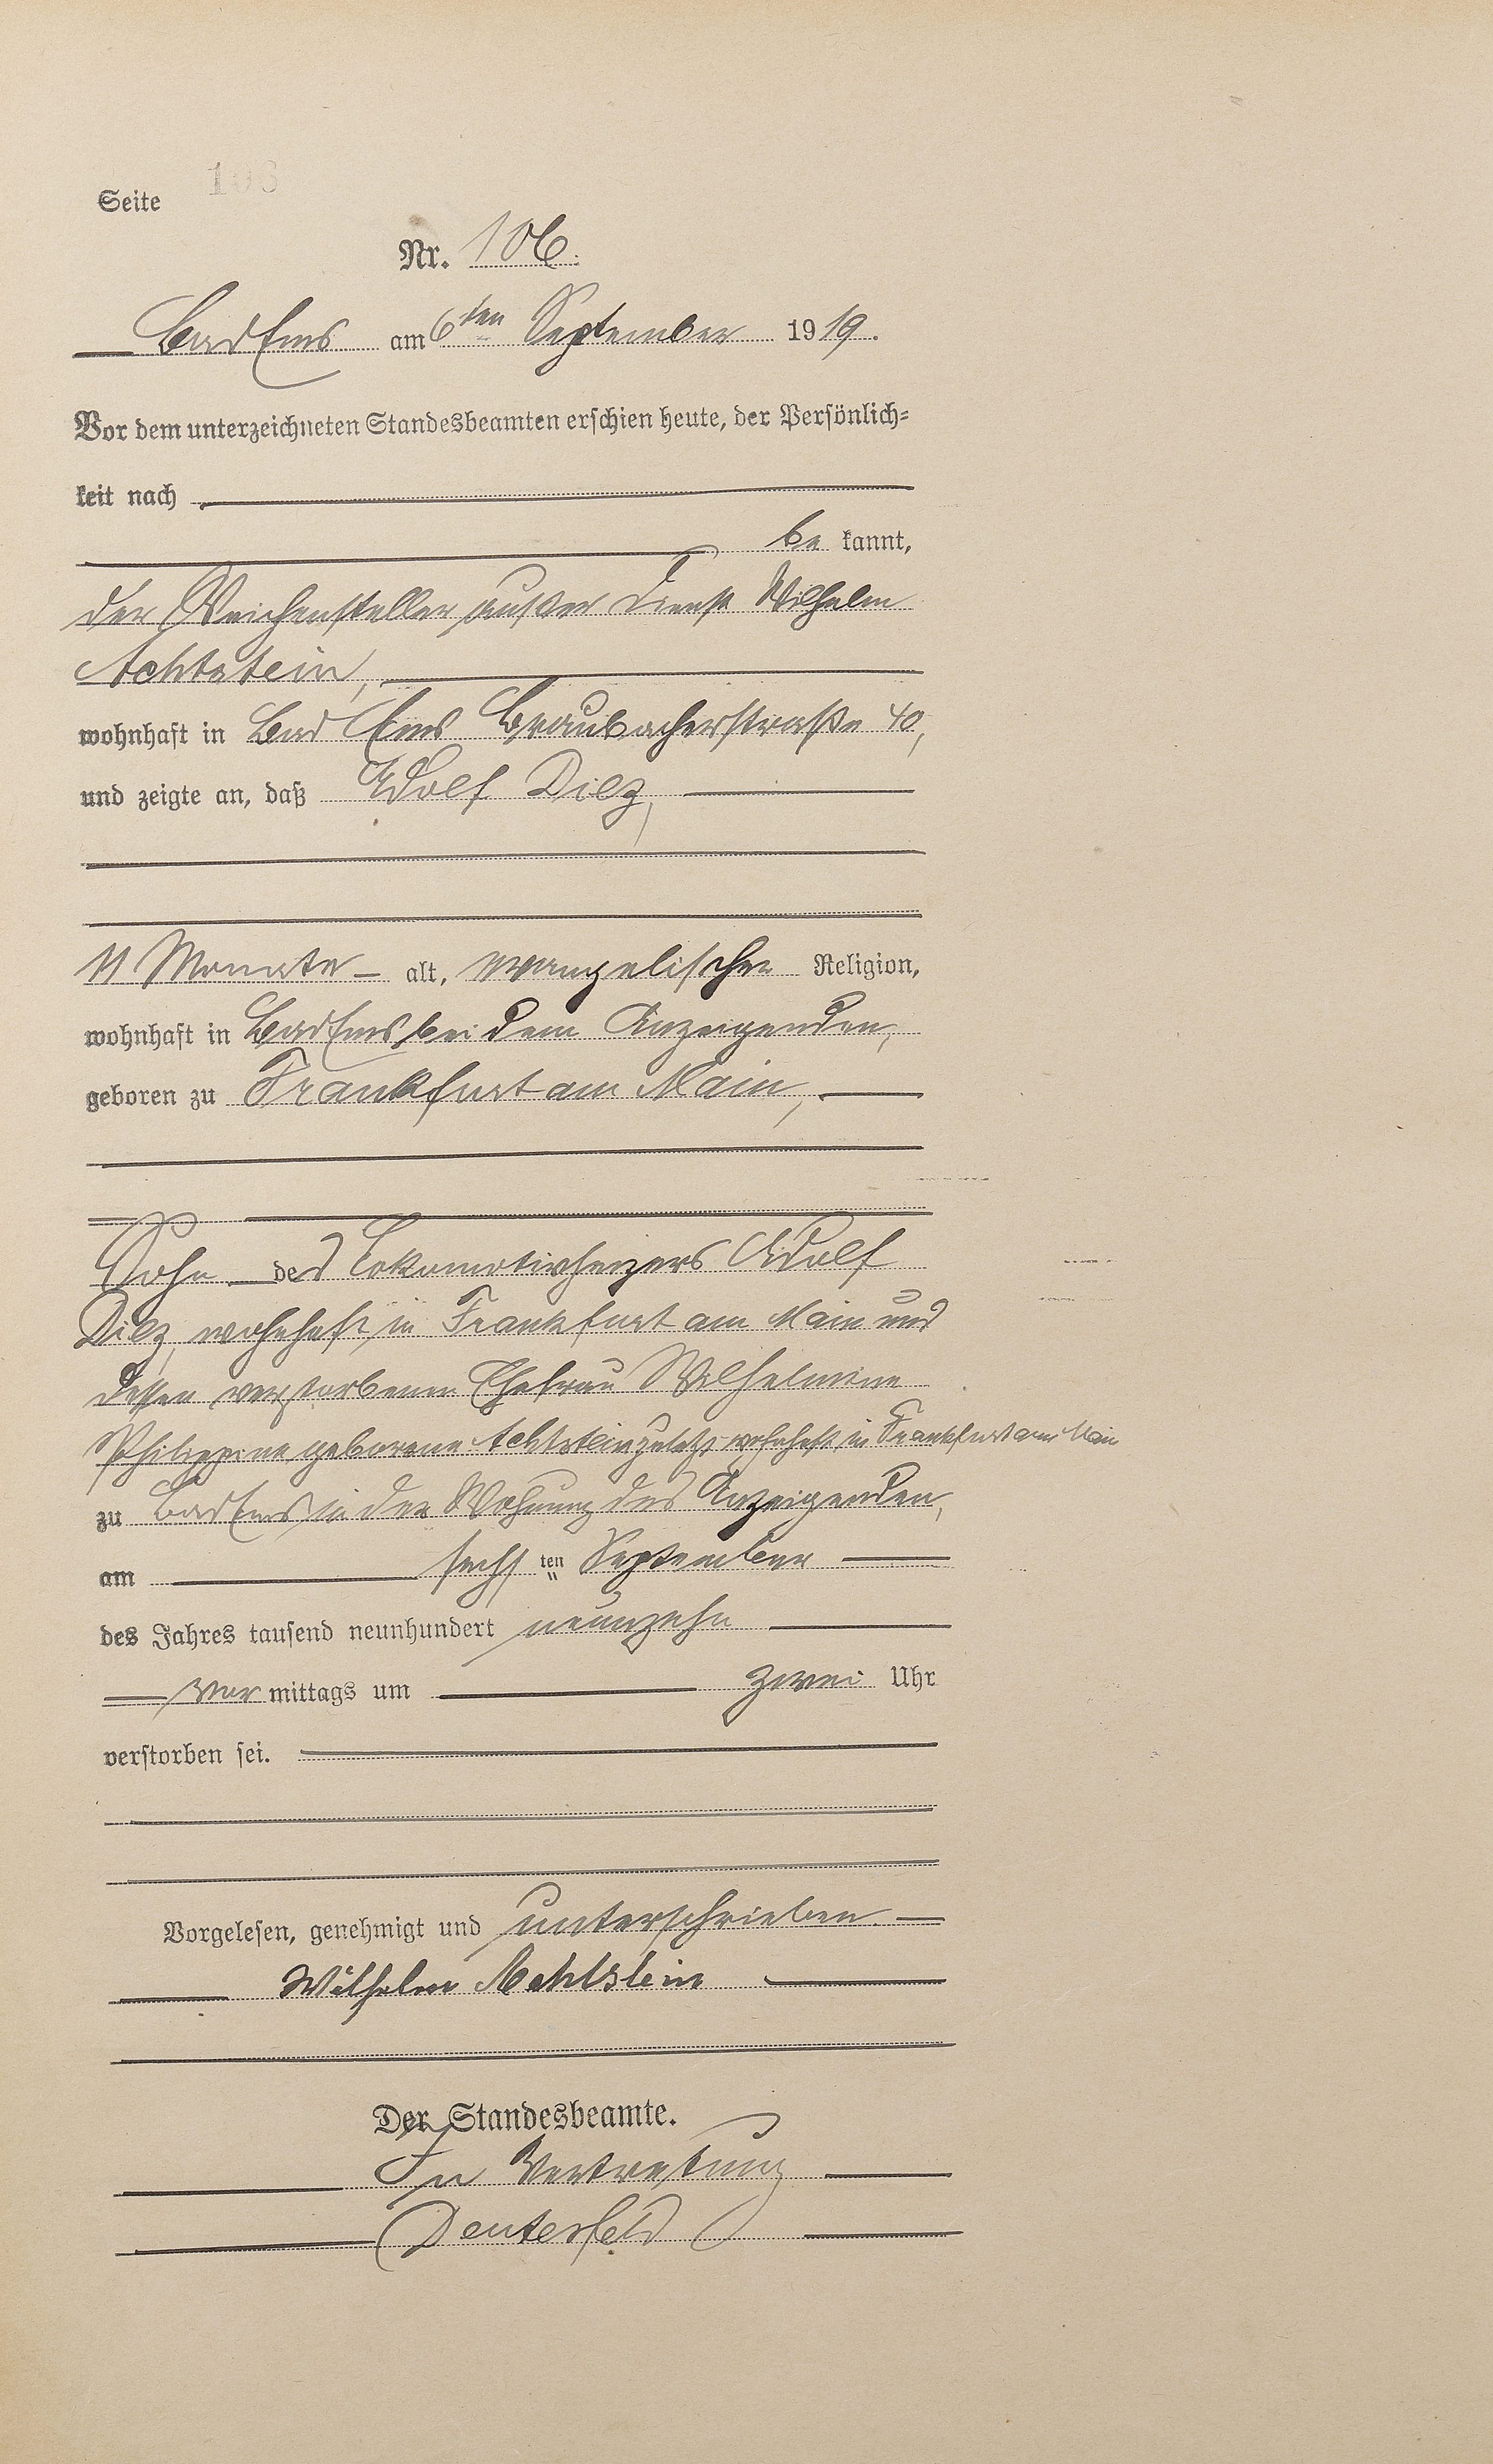 Seite 106
Nr. 106.
Bad Ems am 6ten September 1919.
Vor dem unterzeichneten Standesbeamten erschien heute, der Persönlich-
keit nach
be kannt,
der Weichensteller außer Dienst Wilhelm
Achtstein,
wohnhaft in Bad Ems Braubacherstraße 40,
und zeigte an, daß Adolf Dilz,
11 Monate alt, evangelischer Religion,
wohnhaft in Bad Ems, bei dem Anzeigenden,
geboren zu Frankfurt am Main,
Sohn des Lokomotivheizers Adolf
Dilz, wohnhaft in Frankfurt am Main und
dessen verstorbenen Ehefrau Wilhelmine
Philippine geborene Achtstein zuletzt wohnhaft in Frankfurt am Main
zu Bad Ems, in der Wohnung des Anzeigenden,
am sechsten September
des Jahres tausend neunhundert neunzehn
vor mittags um zwei Uhr
verstorben sei.
Vorgelesen, genehmigt und unterschrieben.
Wilhelm Achtstein
Der Standesbeamte.
In Vertretung
Deuterfeld